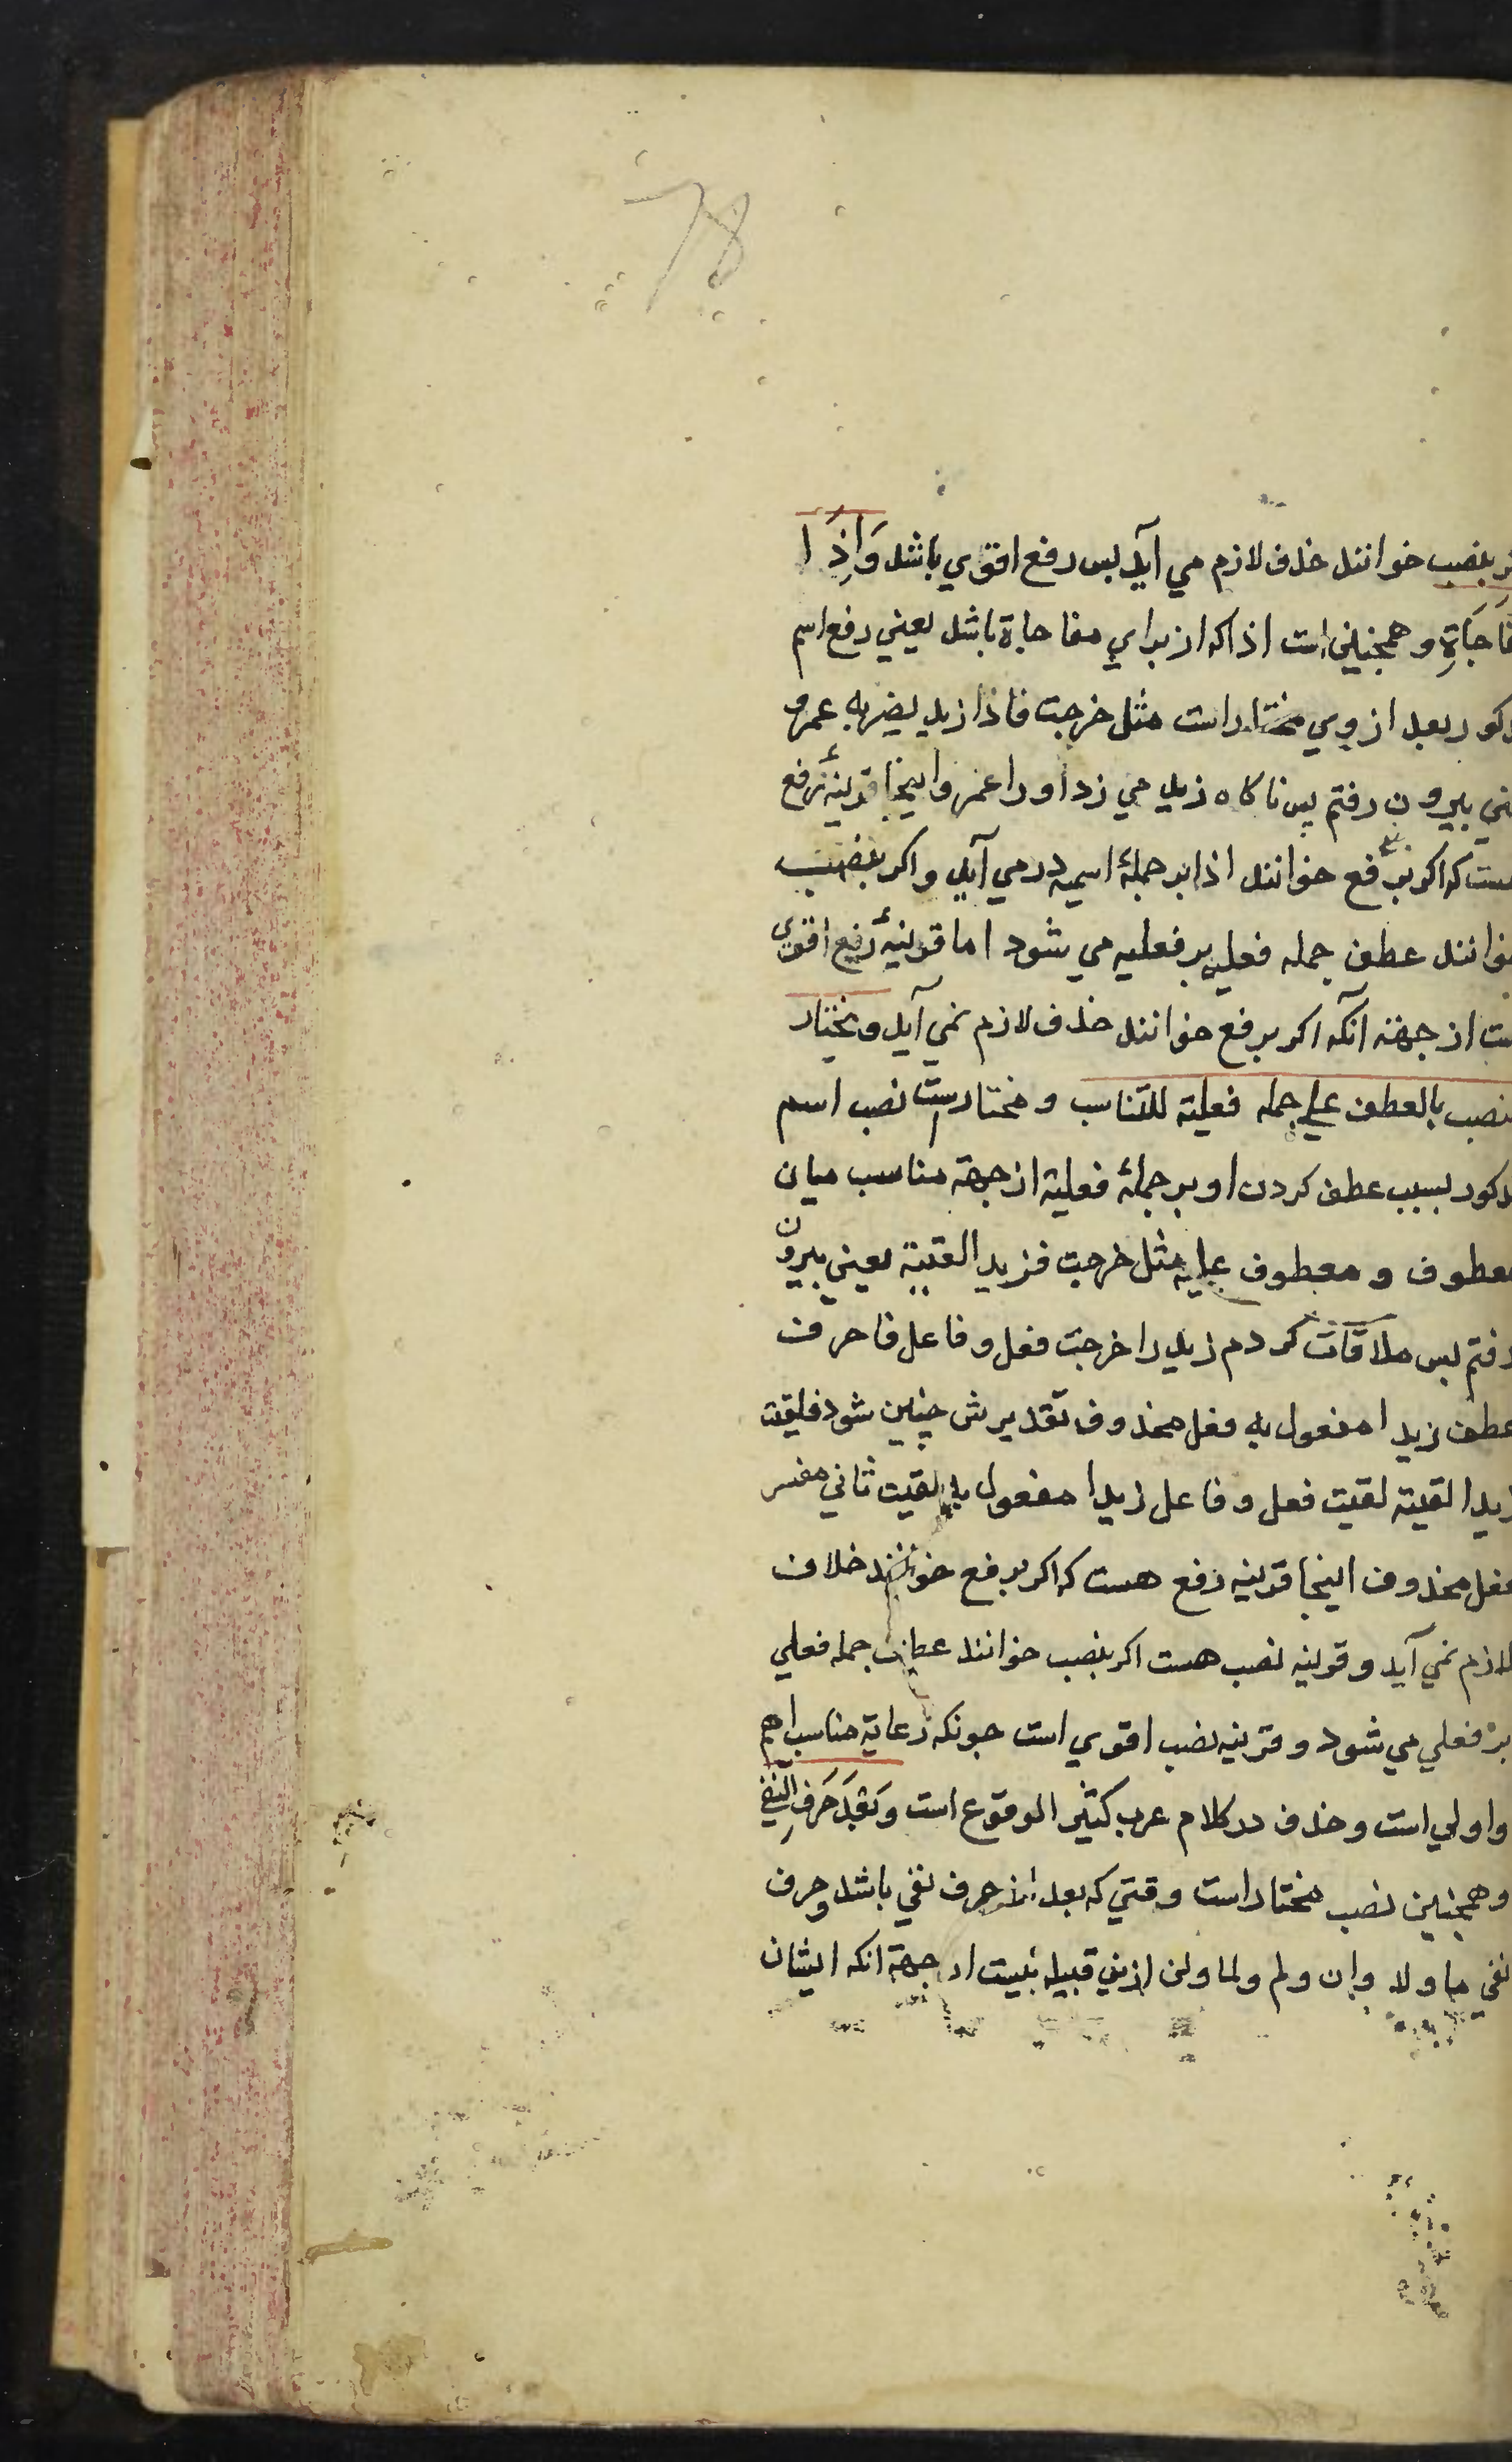 بنصب خوانند خذف لازم می آید بس رفع اقوی باشد وَاِذَا
حَاجَاةِ و همچنین است اذا که از برای مفاجاة باشد یعنی رفع اسم
کور بعد از وی مختار است مثل خرجت فاذا زید یضربه عمرو
نی بیرون رفتم پس ناکاه زید می زد او را عمرو اینجا قرینهٔ رفع
ست که اکر برفع خوانند اذا بر جملهٔ اسمیه در می آید و اکر بنصب
خوانند عطف جمله فعلیه بر فعلیه می شود اما قرینهٔ رفع اقوی
ست از جهته آنکه اکر برفع خوانند حذف لازم نمی آید و یختار
نصب بالعطف علی جمله فعلیة للتناسب و مختارست نصب اسم
دکور بسبب عطف کردن او بر جملهٔ فعلیة از جهة مناسب میان
معطوف و معطوف علیه مثل خرجت فزیدا لقیته یعنی بیرون
رفتم بس ملاقات کردم زید را خرجت فعل و فاعل فا حرف
عطف زیدا مفعول به فعل محذوف تقدیرش چنین شود فلقیت
زیدا لقیته لقیت فعل و فاعل زیدا مفعول به لقیت ثانی مفسر
فعل محذوف اینجا قرینه رفع هست که اکر برفع خوانند خلاف
لازم نمی آید و قرینه نصب هست اکر بنصب خوانند عطف جمله فعلی
بر فعلی می شود و قرینه نصب اقوی است جونکه رعایة مناسب اهم
و اولی است و حذف در کلام عرب کثیر الوقوع است وَبَعْدَ حَرفِ النفی
و همچنین نصب مختار است وقتی که بعد از حرف نفی باشد و حرف
نفی ما و لا و ان و لم و لما و لن ازین قبیله نیست از جهة انکه ایشان